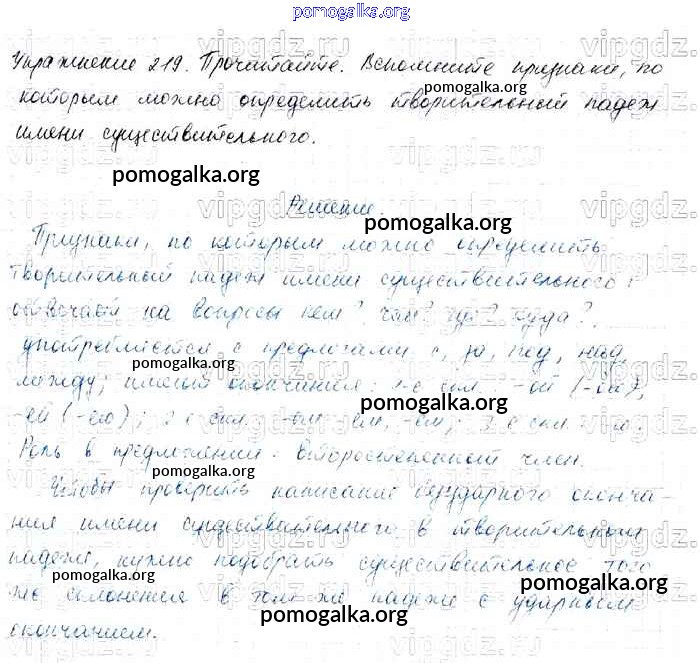 pomogalka.org
Упражнение 219. Прочитайте. Вспомните признаки, по
pomogalka.org
которым можно определить творительный падеж
имени существительного.
pomogalka.org
Решение
pomogalka.org
Признаки, по которым можно определить
творительный падеж имени существительного:
отвечает на вопросы кем? чем? где? куда?,
употребляется с предлогами с, за, под, над,
pomogalka.org
между; имеют окончания: 1-е скл. -ой (-ою),
pomogalka.org
-ей (-ею); 2-е скл. -ом, -ем; 3-е скл.
Роль в предложении - второстепенный член.
pomogalka.org
Чтобы проверить написание безударного оконча-
ния имени существительного в творительном
падеже, нужно подобрать существительное того
pomogalka.org pomogalka.org
же склонения в том же падеже с ударным
pomogalka.org
окончанием.